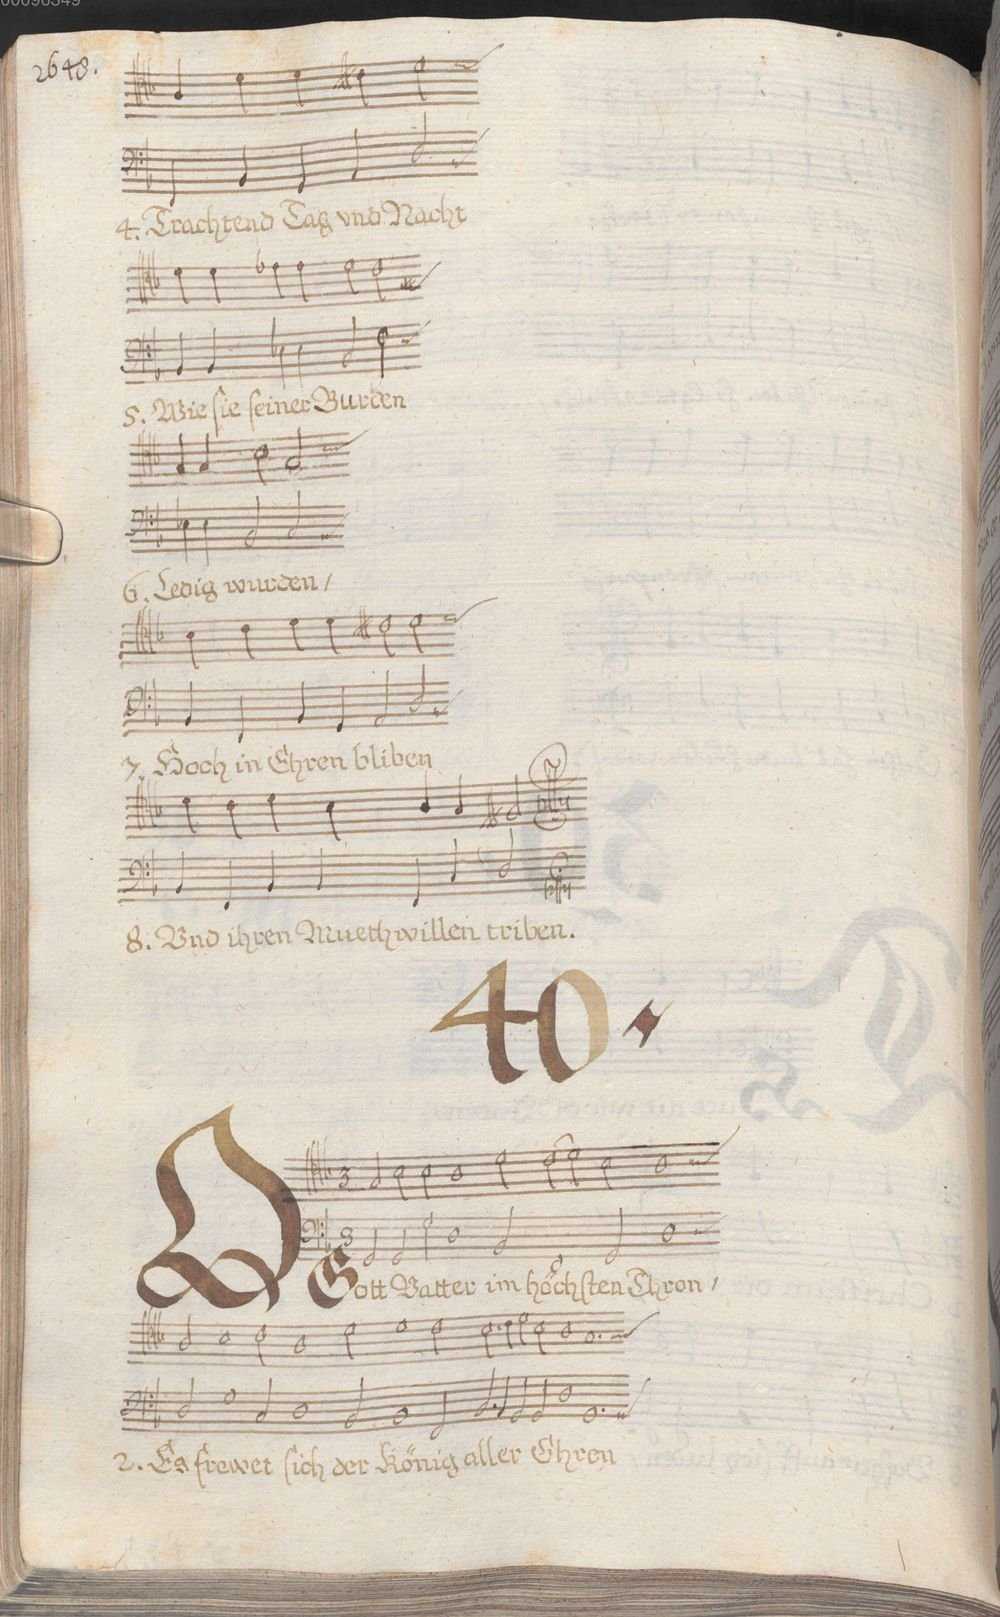 00098349
2648.
4. Trachtend Tag vnd Nacht
5. Wie sie seiner Burden
6. Ledig wurden /
7. Hoch in Ehren bliben
8. Vnd ihren Muethwillen triben.
40.
3
3
O Gott Vatter im höchsten Thron /
2. Es frewet sich der König aller Ehren